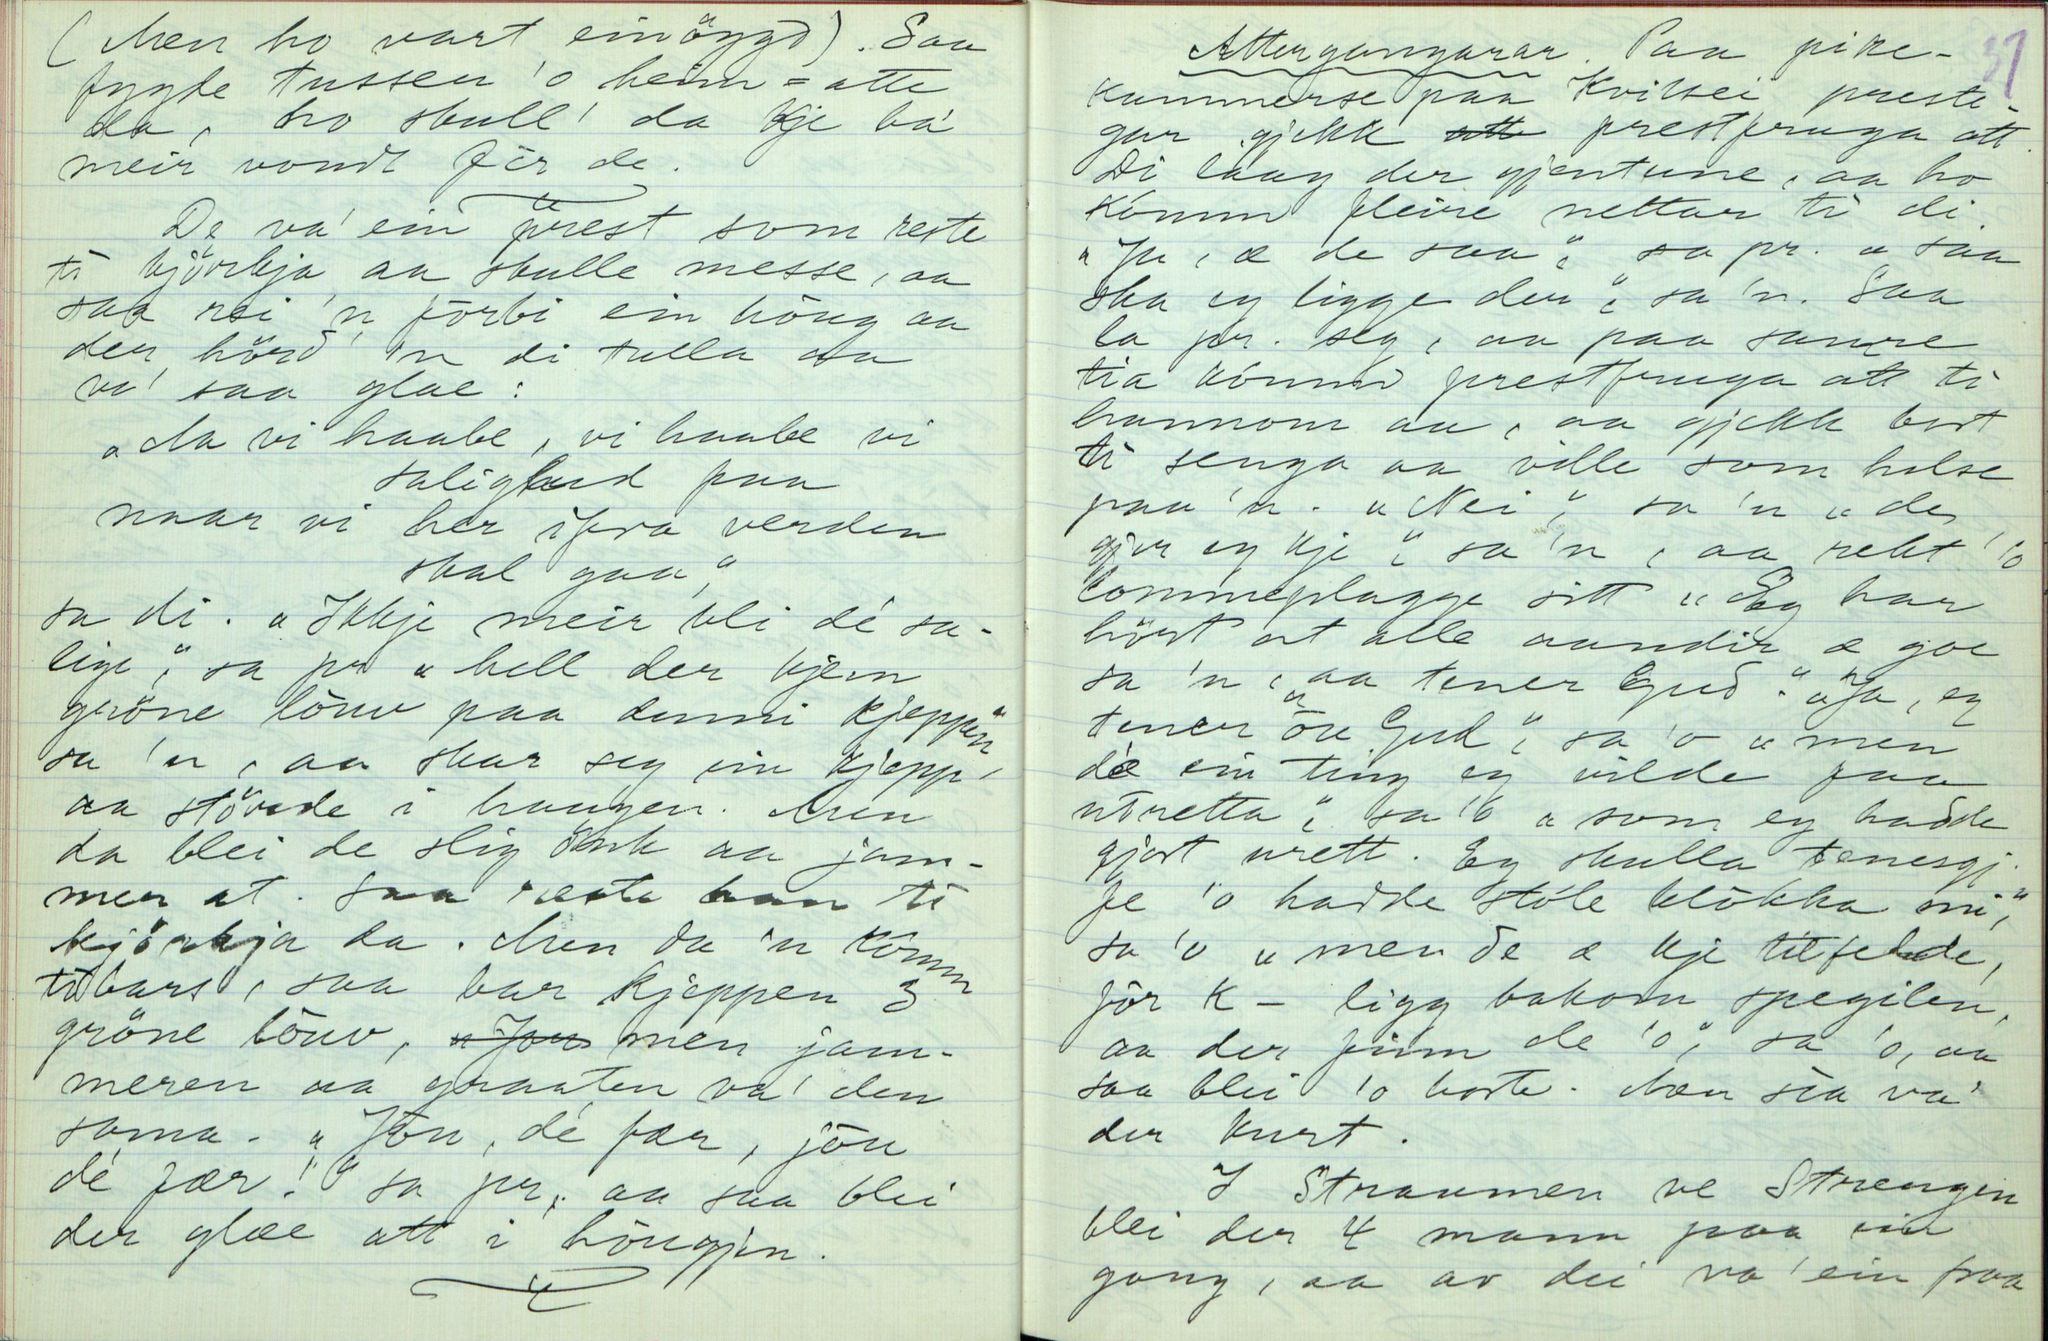 (Men ho vart einöygd). Saa
fygde tussen 'o heim = atte
da, ho skull' da kje ha
meir vondt för de.
De va' ein prest som reste
ti kjörkja aa skulle messe, aa
saa rei 'n förbi ein höug aa
der hörd' 'n di tulla aa
va' saa glae:
"Aa vi haabe, vi haabe vi
salighed paa
naar vi her ifra verden
skal gaa",
sa di. "Ikkje meir bli dé sa-
lige", sa pr "hell der kjem
gröne löuv paa denni kjeppen"
sa 'n, aa skar seg ein kjepp,
aa stöude i haugen. Men
da blei de slig önk aa jam-
mer at. Saa reste han ti
kjörkja da. Men da 'n kömm
tibars, saa bar kjeppen 3
gröne löuv, men jam-
meren aa graaten va' den
sama. "Jöu, dé fær, jöu
dé fær!" sa pr, aa saa blei
der glæe att i höugjen.
Attergangarar. Paa pike- 37
kammerse paa Kvitsei preste-
gar gjekk prestfruga att.
Di laag der gjentune, aa ho
kömm fleire nettar ti di
"Ja, æ de saa", sa pr. "saa
ska eg ligge der", sa 'n. Saa
la pr. seg, aa paa samre
tia kömm prestfruga att ti
hannom aa, aa gjekk bort
ti senga aa ville som helse
paa 'n. "Nei", sa 'n "de
gjer eg kje", sa 'n, aa rekt 'o
lommeplagge sitt "Eg har
hört at alle aandir æ goe
sa 'n, "aa tener Gud." "Ja, eg
tener öu Gud", sa 'o "men
dé ein ting eg vilde faa
utretta", sa 'o "som eg hadde
gjort urett. Eg skulla tenesgj.
fe 'o hadde stole klökka mi",
sa 'o "men de æ kje tilfelde,
för K - ligg bakom spegilen,
aa der finn de 'o", sa 'o, aa
saa blei 'o borte. Men sia va'
der kurt.
I Straumen ve Strengin
blei der 4 mann paa ein
gong, aa av dei va' ein fraa